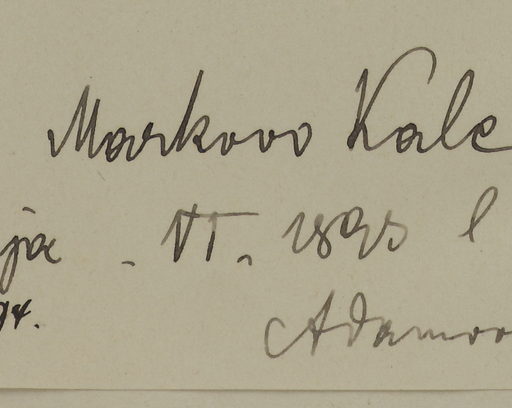 Markovo Kale
ja - VI. 1893 l
94.
Adamov